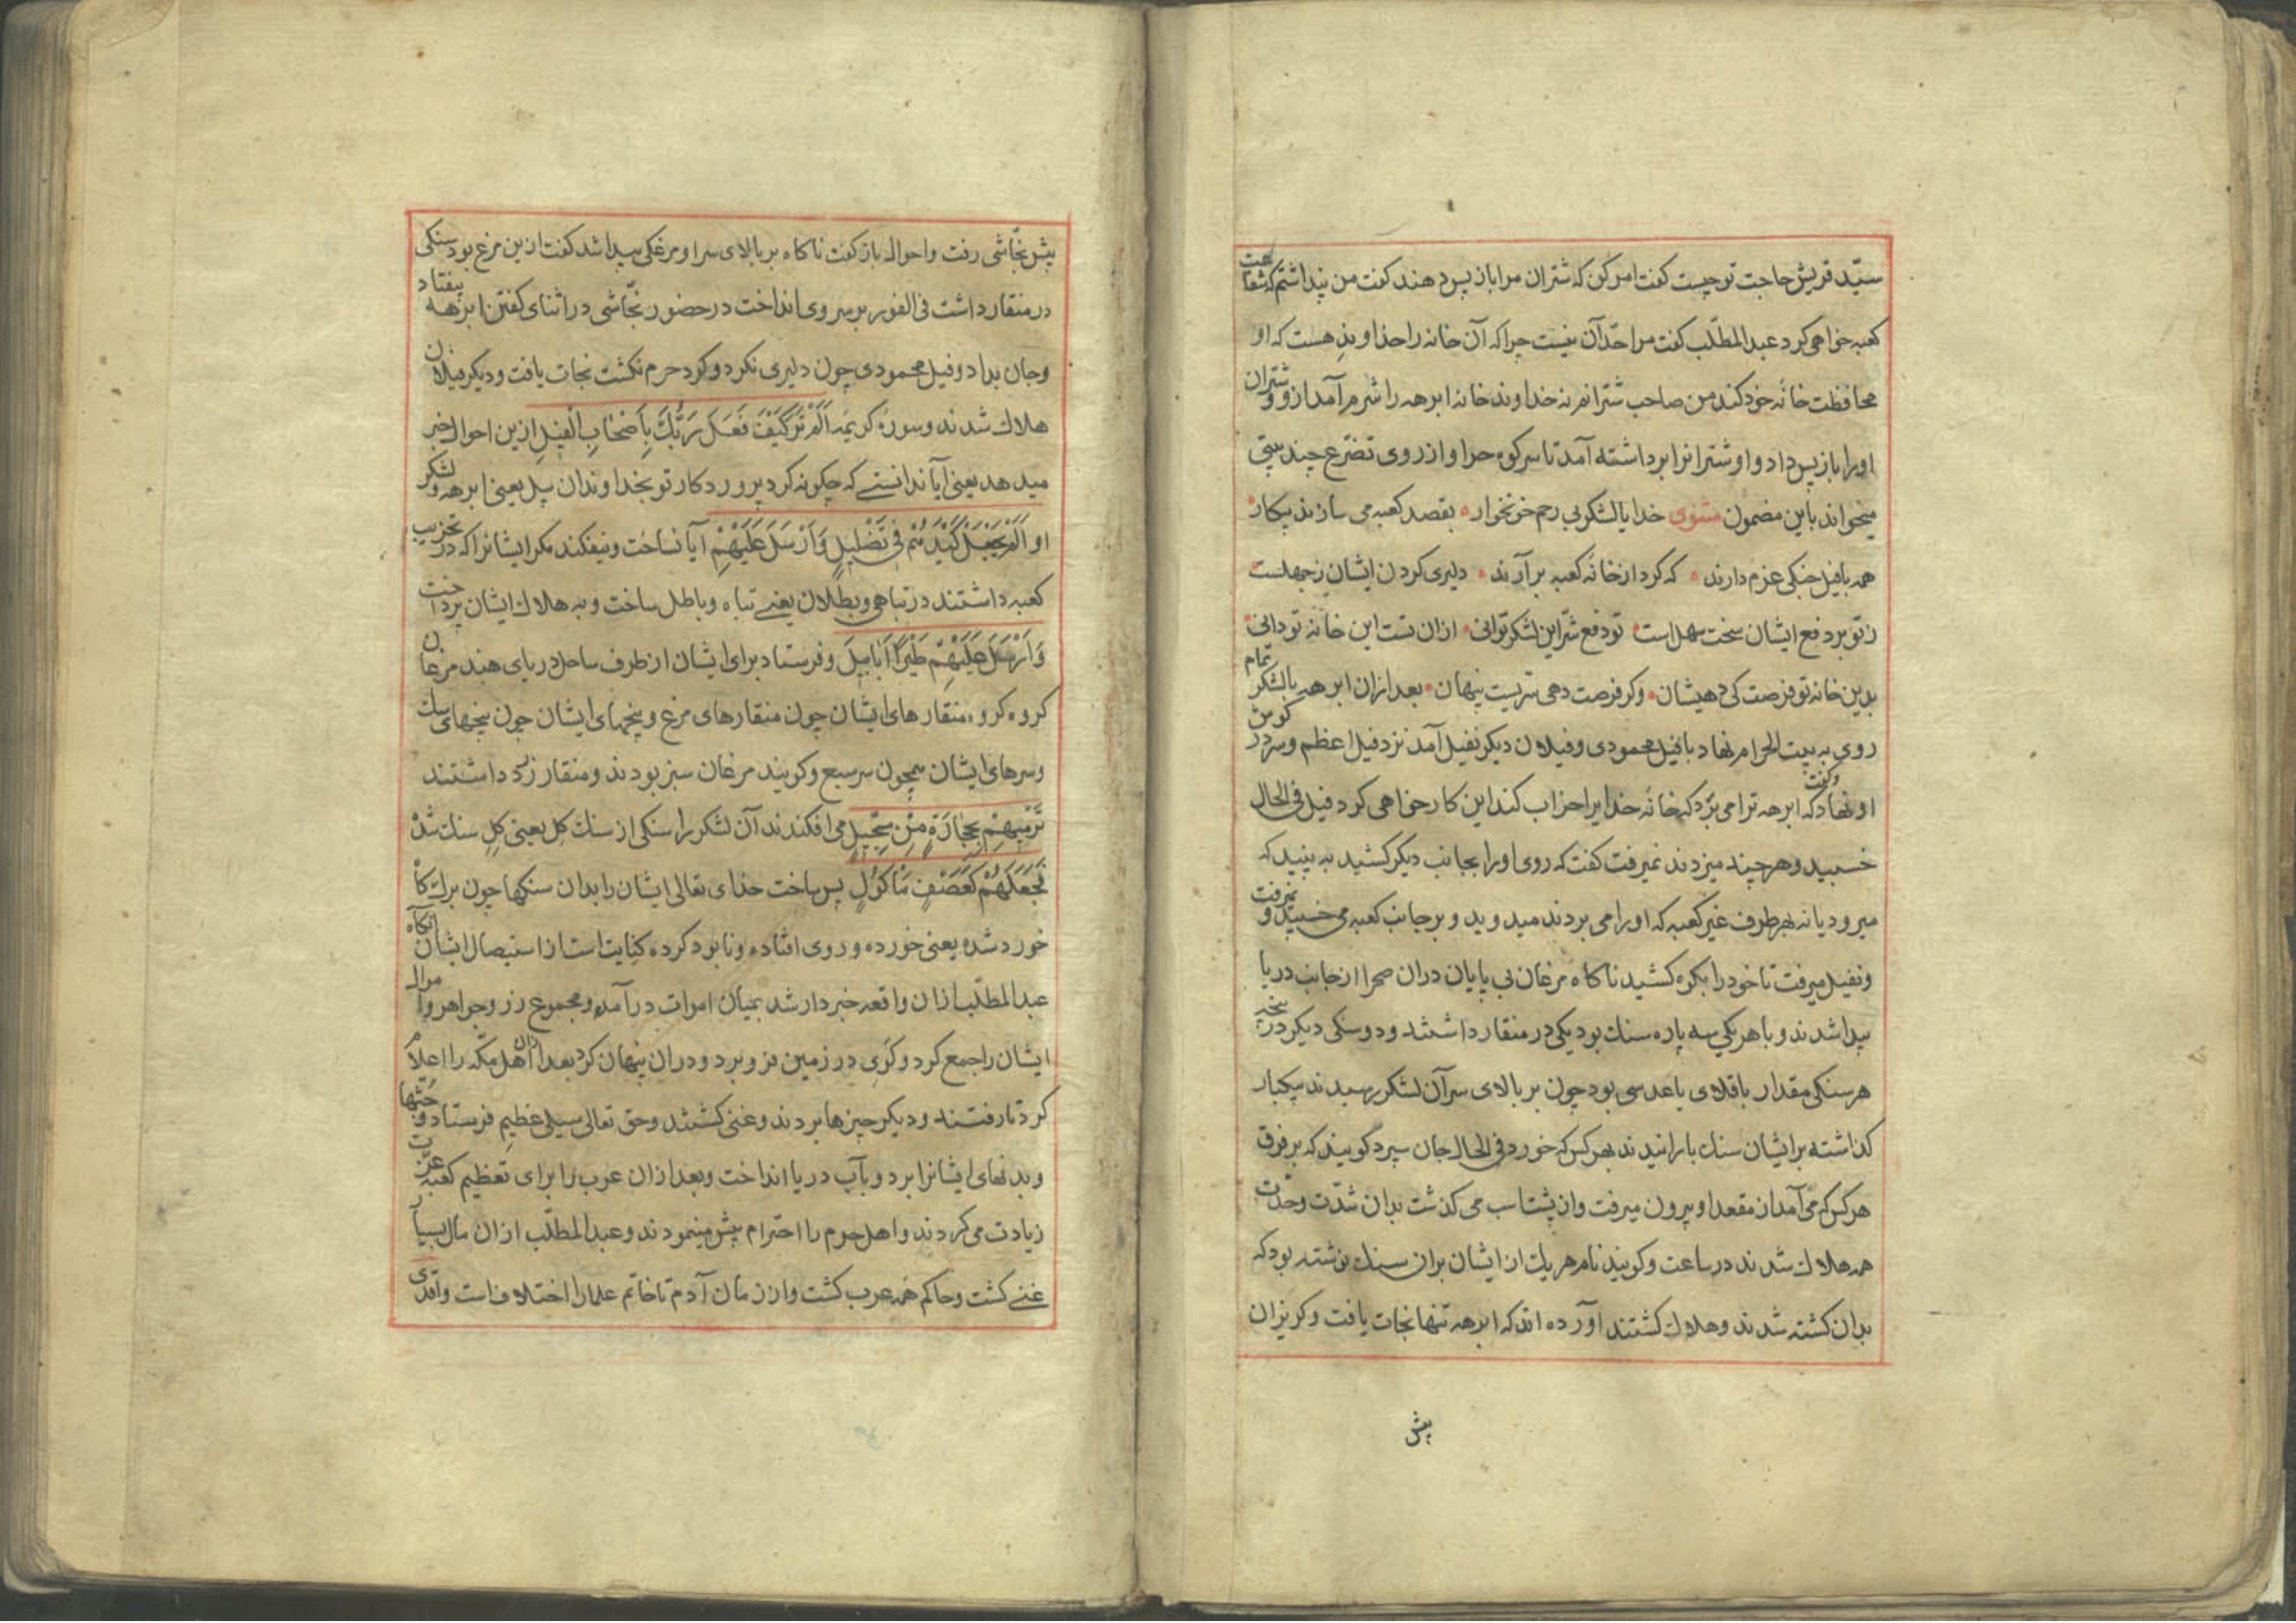 سیّد قریش حاجت تو چیست کفت امر کن که شتران مرا باز پس دهند کفت من پنداشتم که شفاعت
کعبه خواهی کرد عبد المطّلب کفت مرا حدّ آن نیست چرا که آن خانه را خداوندِ هست که او
محافظت خانهٔ خود کند من صاحب شترانم نه خداوند خانه ابرهه را شرم آمد ازو و شتران
او را باز پس داد و او شترانرا برداشته آمد تا سر کوه حرا و از روی تضرّع چند بیتی
میخواند باین مضمون مثنوی خدایا لشکر بی رحم خونخوار بقصد کعبه می سازند پیکار
همه با فیل جنکی عزم دارند که کرد از خانهٔ کعبه برآرند دلیری کردن ایشان ز جهلست
ز تو بر دفع ایشان سخت سهل است تو دفع شرّ این لشکر توانی ازان تست این خانه تو دانی
بدین خانه تو فرصت کی دهیشان وکر فرصت دهی سرّیست پنهان بعد ازان ابرهه با لشکر تمام
روی به بیت الحرام نهاد با فیل محمودی و فیلان دیکر نفیل آمد نزد فیل اعظم و سر در کوش
او نهاد وکفت که ابرهه ترا می برد که خانهٔ خدایرا خراب کند این کار خواهی کرد فیل فی الحال
خسبید و هر چند میزدند نمیرفت کفت که روی او را بجانب دیکر کشید به بینید که
میرود یا نه بهر طرف غیر کعبه که او را می بردند میدوید و بر جانب کعبه می خسبید و نمیرفت
و نفیل میرفت تا خود را بکوه کشید ناکاه مرغان بی پایان دران صحرا از جانب دریا
پیدا شدند و با هر یکی سه پاره سنک بود یکی در منقار داشتند و دو سنکی دیکر در پنجه
هر سنکی مقدار باقلای یا عدسی بود چون بر بالای سر آن لشکر رسیدند یکبار
کذاشته بر ایشان سنک بارانیدند بهر کس که خورد فی الحال جان سپرد کویند که بر فرق
هر کس که می آمد از مقعد او بیرون میرفت و از پشت اسب می کذشت بدان شدّت و حدّت
همه هلاک شدند در ساعت و کویند نام هر یک از ایشان بران سنک نوشته بود که
بدان کشته شدند و هلاک کشتند آورده اند که ابرهه تنها نجات یافت و کریزان
پیش
پیش نجّاشی رفت و احوال باز کفت ناکاه بر بالای سر او مرغکی پیدا شد کفت ازین مرغ بود سنکی
در منقار داشت فی الفور بر سر وی انداخت در حضور نجّاشی در اثنای کفتن ابرهه بیفتاد
و جان بداد و فیل محمودی چون دلیری نکرد و کرد حرم نکشت نجات یافت و دیکر فیلان
هلاک شدند و سورهٔ کریمه اَلَمْ تَرَ كَيْفَ فَعَلَ رَبُّكَ بِاَصْحَابِ الْفِيلِ ازین احوال خبر
میدهد یعنی آیا ندانستے که چکونه کرد پروردکار تو بخداوندان پیل یعنی ابرهه و لشکر
او اَلَمْ يَجْعَلْ كَيْدَهُمْ فِي تَضْلِيلٍ وَاَرْسَلَ عَلَيْهِمْ آیا نساخت و نیفکند مکر ایشانرا که در تخریب
کعبه داشتند در تباهی و بطلان یعنے تباه و باطل ساخت و به هلاک ایشان پرداخت
وَاَرْسَلَ عَلَيْهِمْ طَيْرًا اَبَابِيلَ و فرستاد برای ایشان از طرف ساحل دریای هند مرغان
کروه کروه منقارهای ایشان چون منقارهای مرغ و پنجهای ایشان چون پنجهای سک
و سرهای ایشان همچون سر سبع و کویند مرغان سبز بودند و منقار زرد داشتند
تَرْمِيهِمْ بِحِجَارَةٍ مِنْ سِجِّيلٍ می افکندند آن لشکر را سنکی از سنک کل یعنی کل سنک شده
فَجَعَلَهُمْ كَعَصْفٍ مَأْكُولٍ پس ساخت خدای تعالی ایشان را بدان سنکها چون برک کاه
خورد شده یعنی خورده و روی افتاده و نابود کرده کنایت است از استیصال ایشان آنکاه
عبد المطّلب ازان واقعه خبردار شد بمیان اموات در آمد و مجموع زر و جواهر و اموال
ایشان را جمع کرد و کَوی در زمین فرو برد و دران پنهان کرد بعد ازان اهل مکّه را اعلام
کرد تا رفتند و دیکر چیزها بردند و غنی کشتند و حق تعالی سیلی عظیم فرستاد و جثّها
و بدنهای ایشانرا برد و بآب دریا انداخت و بعد ازان عرب را برای تعظیم کعبه عزّت
زیادت می کردند و اهل حرم را احترام بیش مینمودند و عبد المطّلب ازان مال بسیار
غنے کشت و حاکم همه عرب کشت و از زمان آدم تا خاتم علما را اختلاف است واقدی